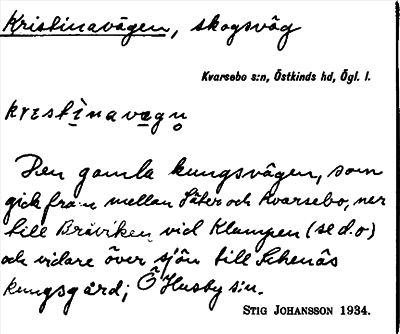 Kristinavägen, skogsväg
Kvarsebo s:n, Östkinds hd, Ögl. l.
krɪstìnavægn̥
Den gamla kungsvägen, som
gick fram mellan Säter och Kvarsebo, ner
till Bråviken vid Klampen (se d.o)
och vidare över sjön till Skenäs
kungsgård; Ö Husby s:n.
STIG JOHANSSON 1934.